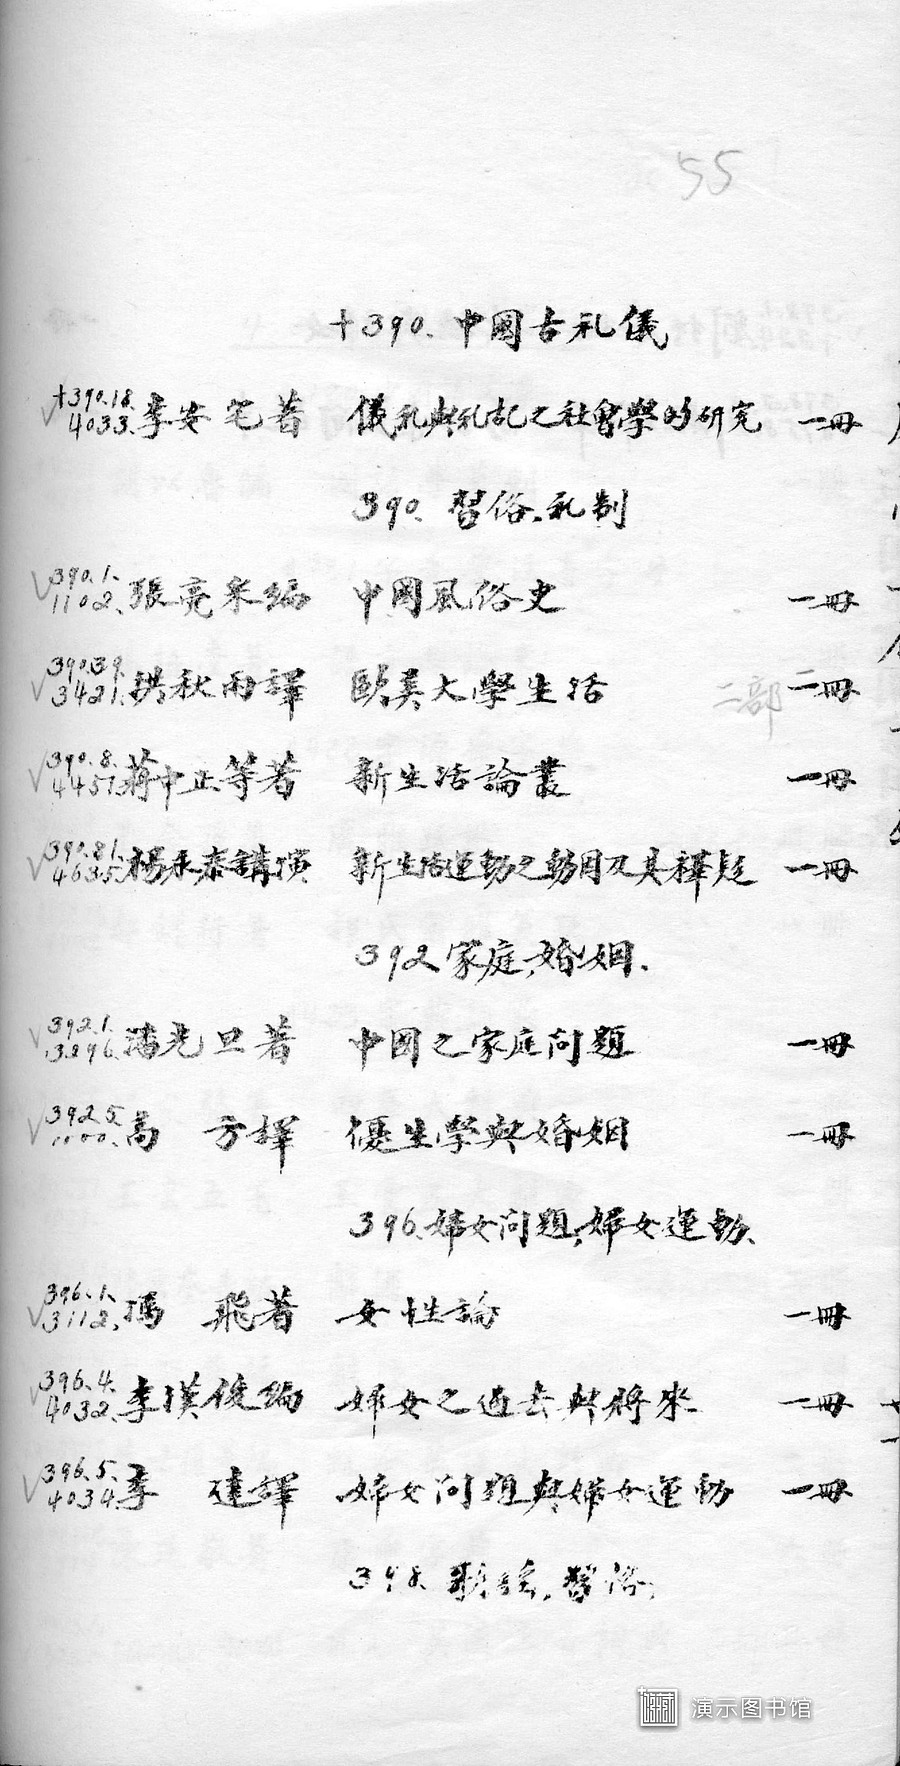 55
+390. 中國古礼儀
+390.18. 李安宅著 儀礼與礼記之社會學的研究 一冊
4033.
390. 習俗.礼制
390.1. 張亮采編 中國風俗史 一冊
1102.
390.39. 洪秋雨譯 歐美大學生活 二部 二冊
3421.
390.8. 蔣中正等著 新生活論叢 一冊
4451.
390.81. 楊永泰講演 新生活運動之動因及其釋疑 一冊
4635.
392 家庭,婚姻.
392.1. 潘光旦著 中國之家庭問題 一冊
3296.
392.5. 高 方譯 優生學與婚姻 一冊
396.婦女问題,婦女運動.
396.1. 馮 飛著 女性論 一冊
3112.
396.4. 李漢俊編 婦女之過去與將來 一冊
4032.
396.5. 李 達譯 婦女问題與婦女運動 一冊
4034.
398. 歌謠,習俗.
演示图书馆